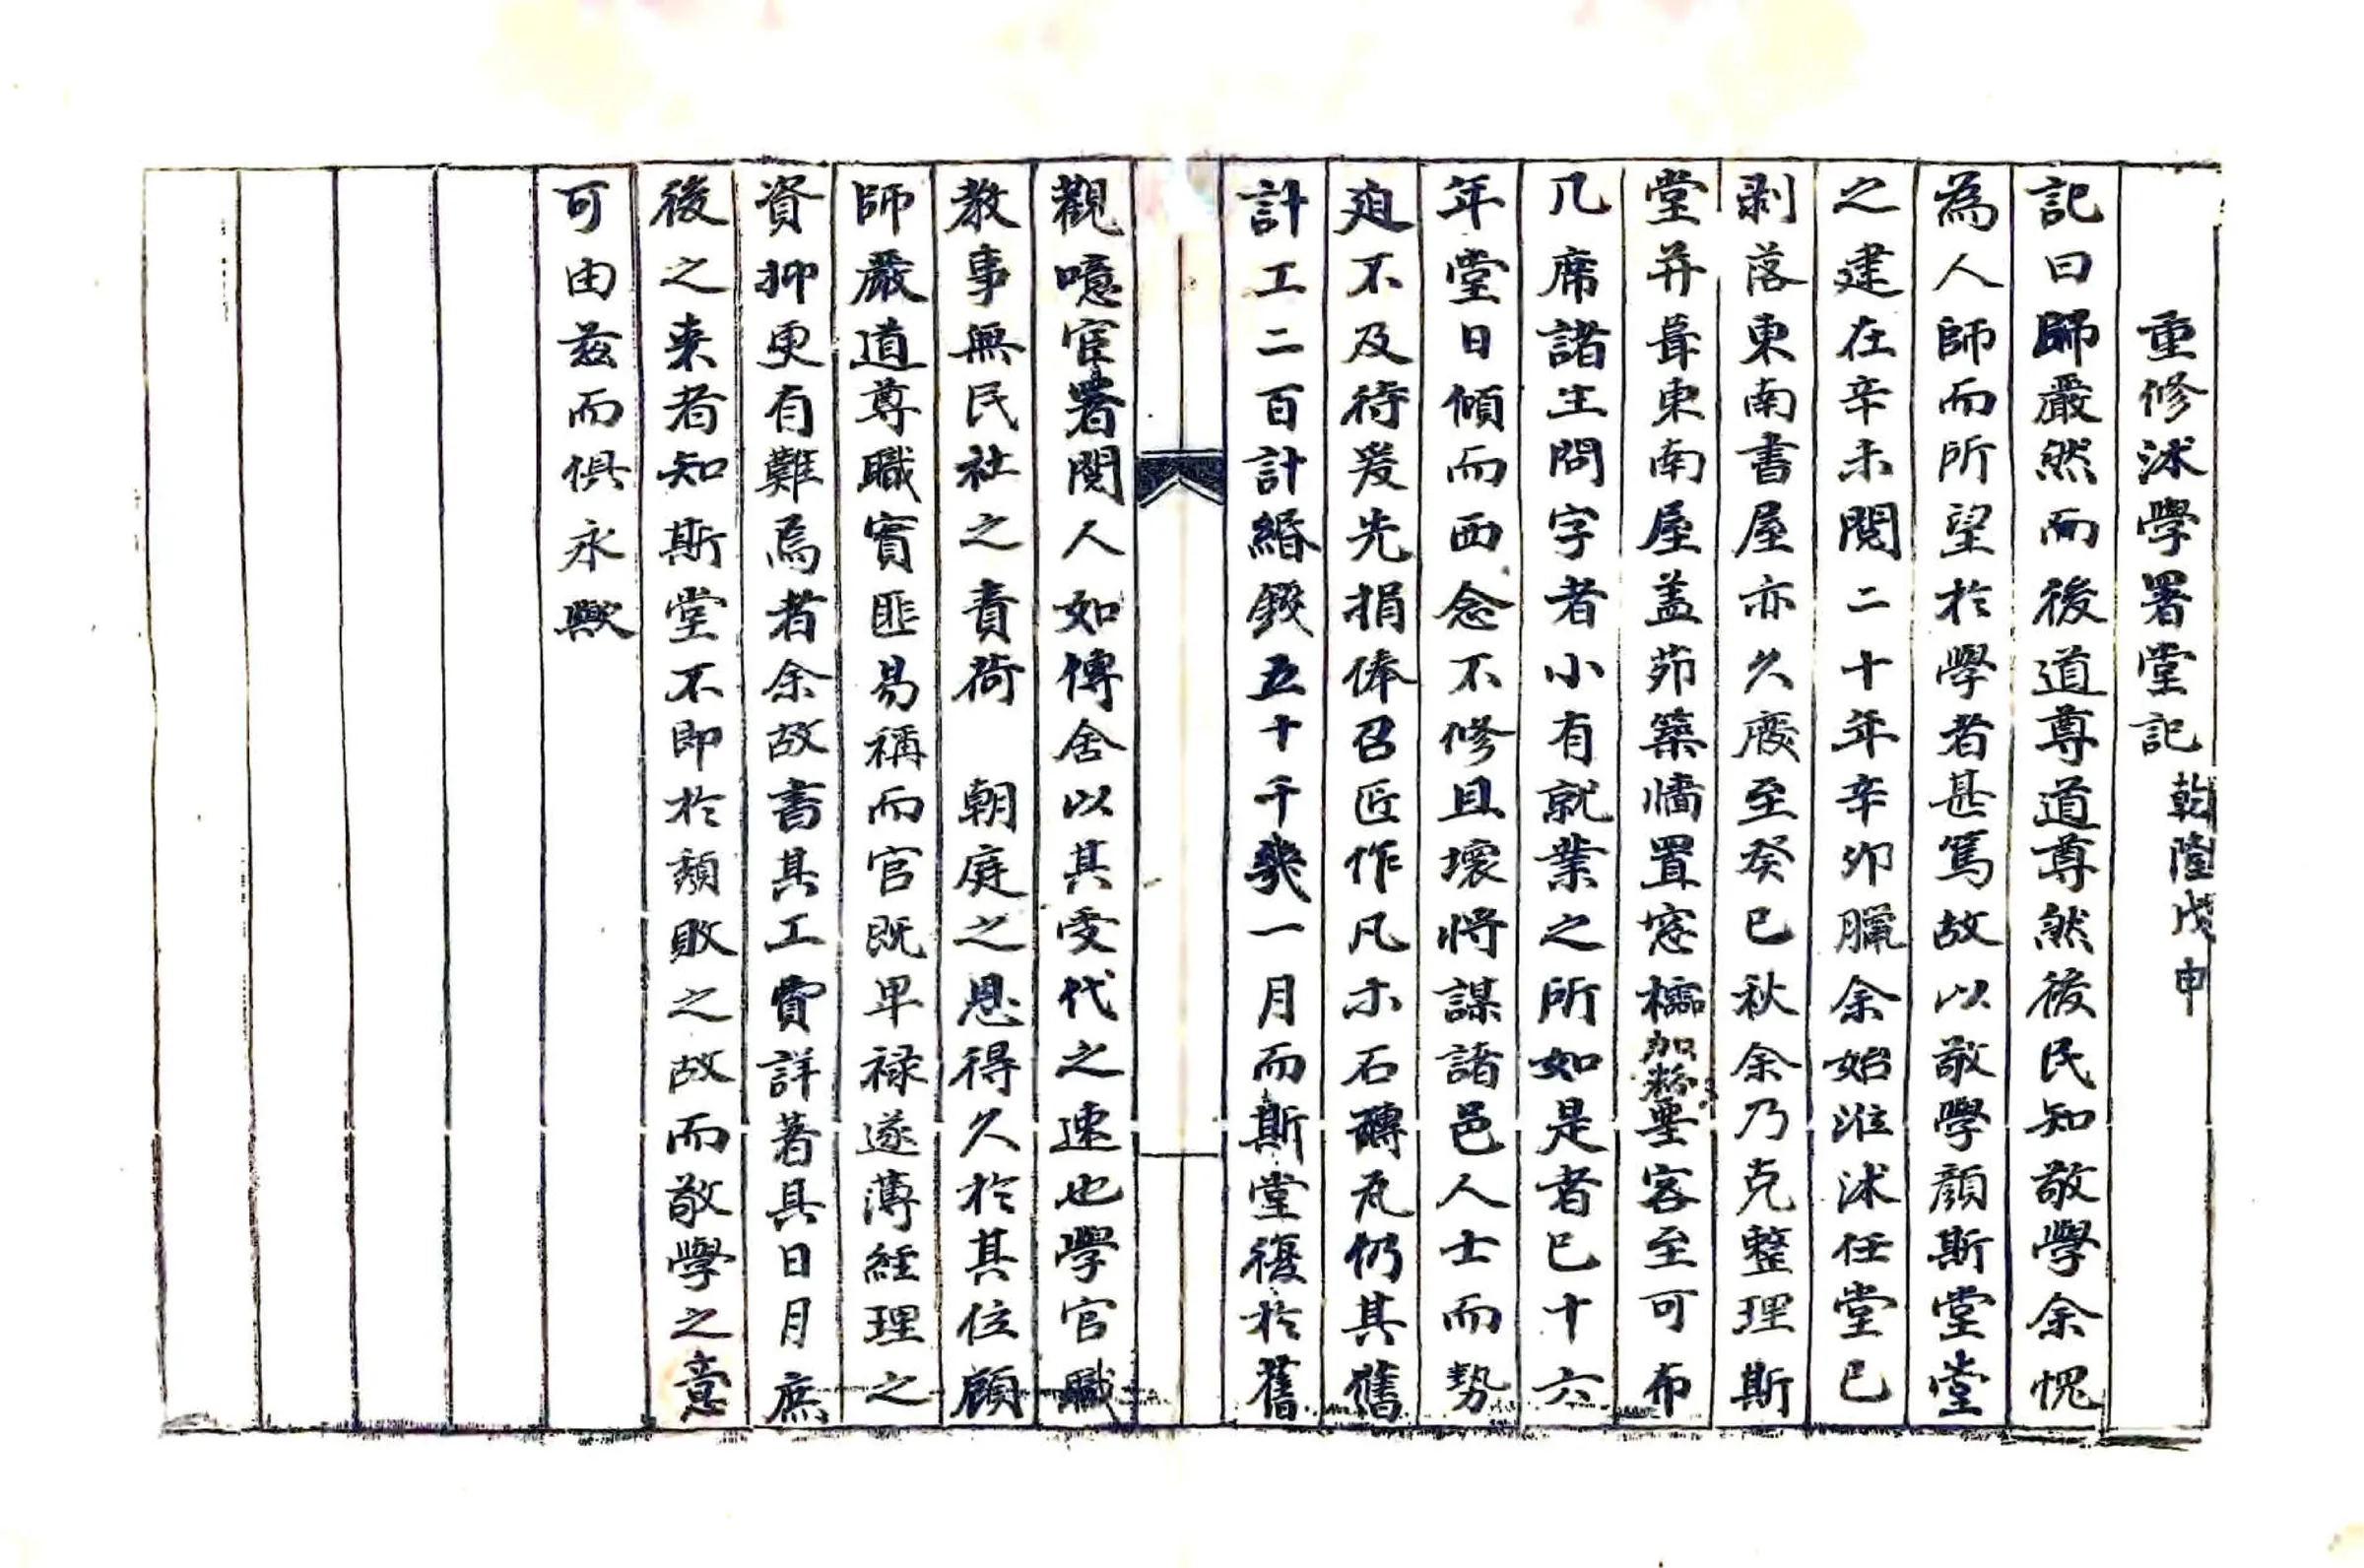 重修沭學署堂記 乾隆戊申
記曰師嚴然而後道尊道尊然後民知敬學余愧
為人師而所望於學者甚篤故以敬學顔斯堂堂
之建在辛未閱二十年辛卯臘余始涖沭任堂已
剥落東南書屋亦久廢至癸巳秋余乃克整理斯
堂并葺東南屋蓋茆築墻置窓櫺加粉堊客至可布
几席諸生問字者小有就業之所如是者已十六
年堂日傾而西念不修且壞將謀諸邑人士而勢
廹不及待爰先捐俸召匠作凡木石磚瓦仍其舊
計工二百計緡錢五十千幾一月而斯堂復於舊
觀噫宦署閱人如傳舍以其受代之速也學官職
教事無民社之責荷 朝庭之恩得久於其位顧
師嚴道尊職實匪易稱而官既卑禄遂薄經理之
資抑更有難焉者余故書其工費詳著具日月庶
後之来者知斯堂不即於頽敗之故而敬學之意
可由兹而俱永歟